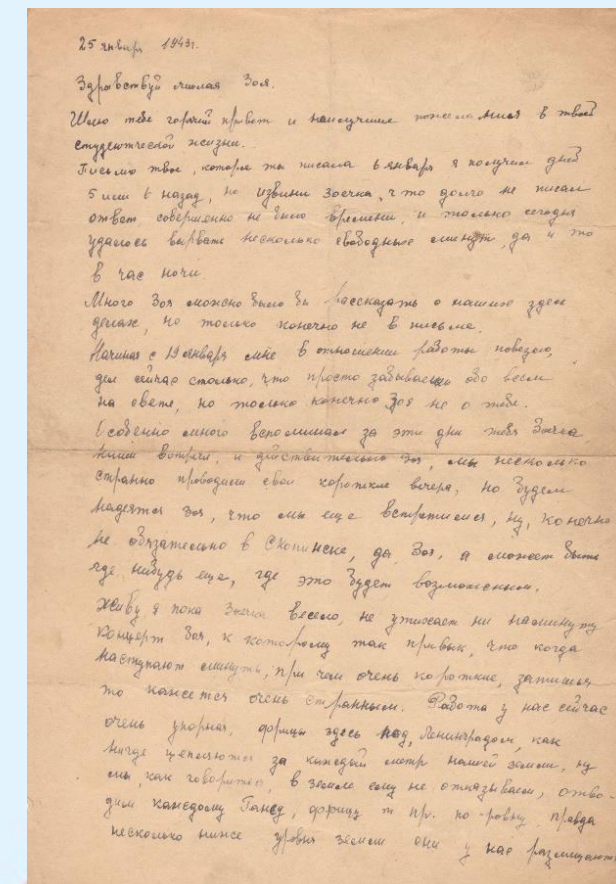 25 января 1943г.
Здравствуй милая Зоя.
Шлю тебе горячий привет и наилучшие пожелания в твоей
студенческой жизни.
Письмо твое, которое ты писала 6 января я получил дней
5 или 6 назад, но извини Зоечка, что долго не писал
ответ, совершенно не было времени, и только сегодня
удалось вырвать несколько свободных минут, да и то
в час ночи.
Много Зоя можно было бы рассказать о наших здесь
делах, но только конечно не в письме.
Начиная с 19 января мне в отношении работы повезло,
дел сейчас столько, что просто забываешь обо всем
на свете, но только конечно Зоя не о тебе.
Особенно много вспоминал за эти дни тебя Зоечка
наши встречи, и действительно Зоя, мы несколько
странно проводили свои короткие вечера, но будем
надеятся Зоя, что мы еще встретимся, ну, конечно
не обязательно в Скопинске, да Зоя, а может быть
где нибудь еще, где это будет возможным.
Живу я пока Зоечка весело, не утихает ни на минуту
концерт Зоя, к которому так привык, что когда
наступают минуты, при чем очень короткие, затишья
то кажется очень странным. Работа у нас сейчас
очень упорная, фрицы здесь под Ленинградом, как
нигде цепляются за каждый метр нашей земли, ну
мы, как говорится, в земле ему не отказываем, отво-
дим каждому Гансу, фрицу и пр. по-ровну, правда
несколько ниже уровня земли они у нас размещают